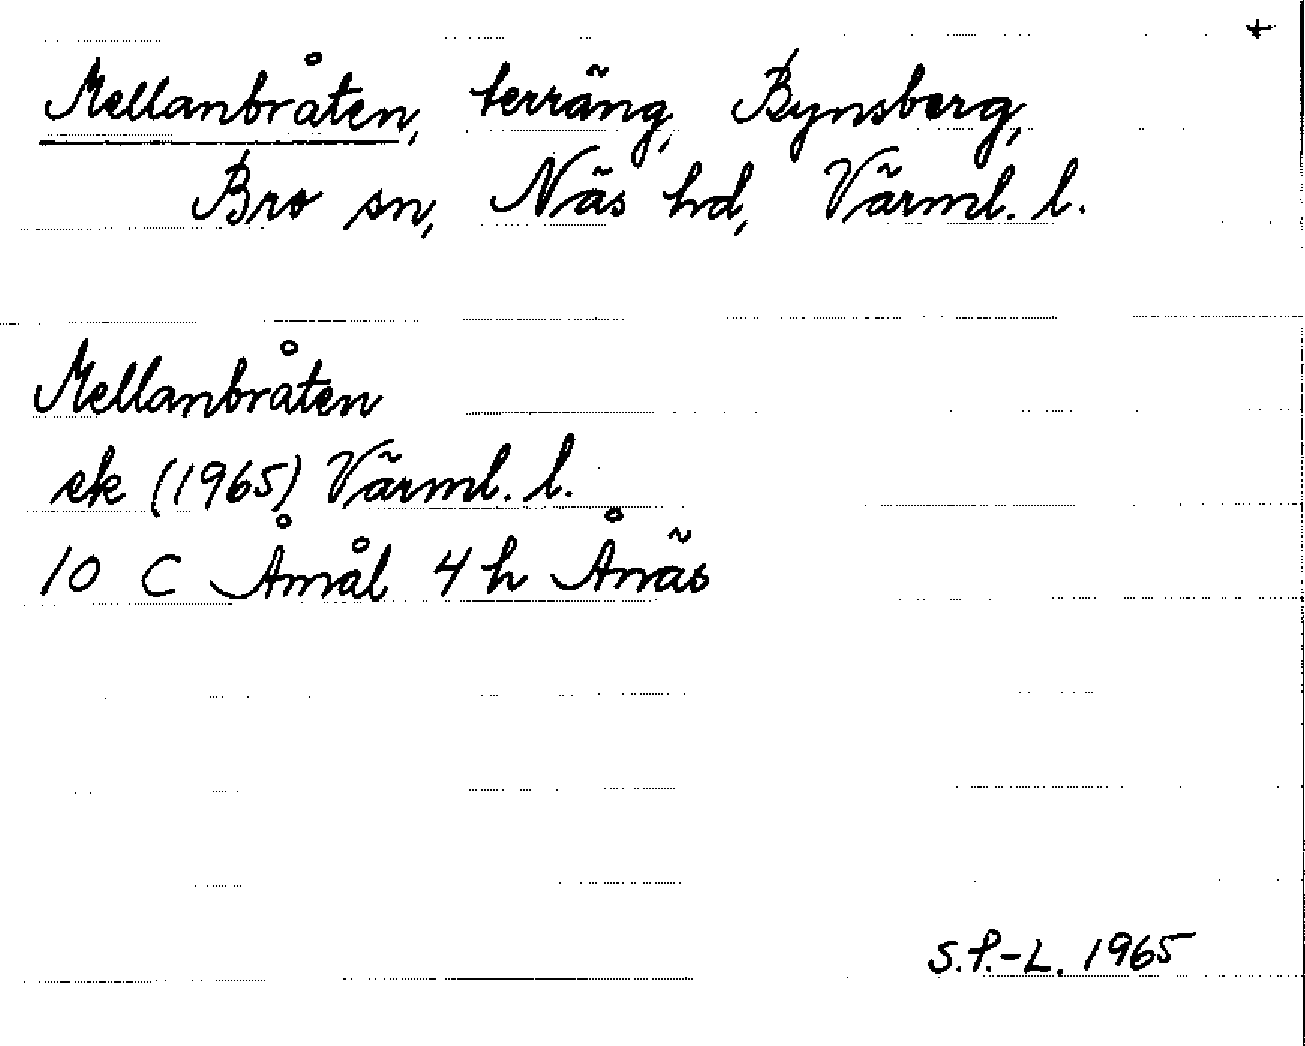 +
Mellanbråten, terräng, Bynsberg,
Bro sn, Näs hd, Värml. l.
Mellanbråten
ek (1965) Värml. l.
10 C Åmål 4 h Ånäs
S.P.-L. 1965